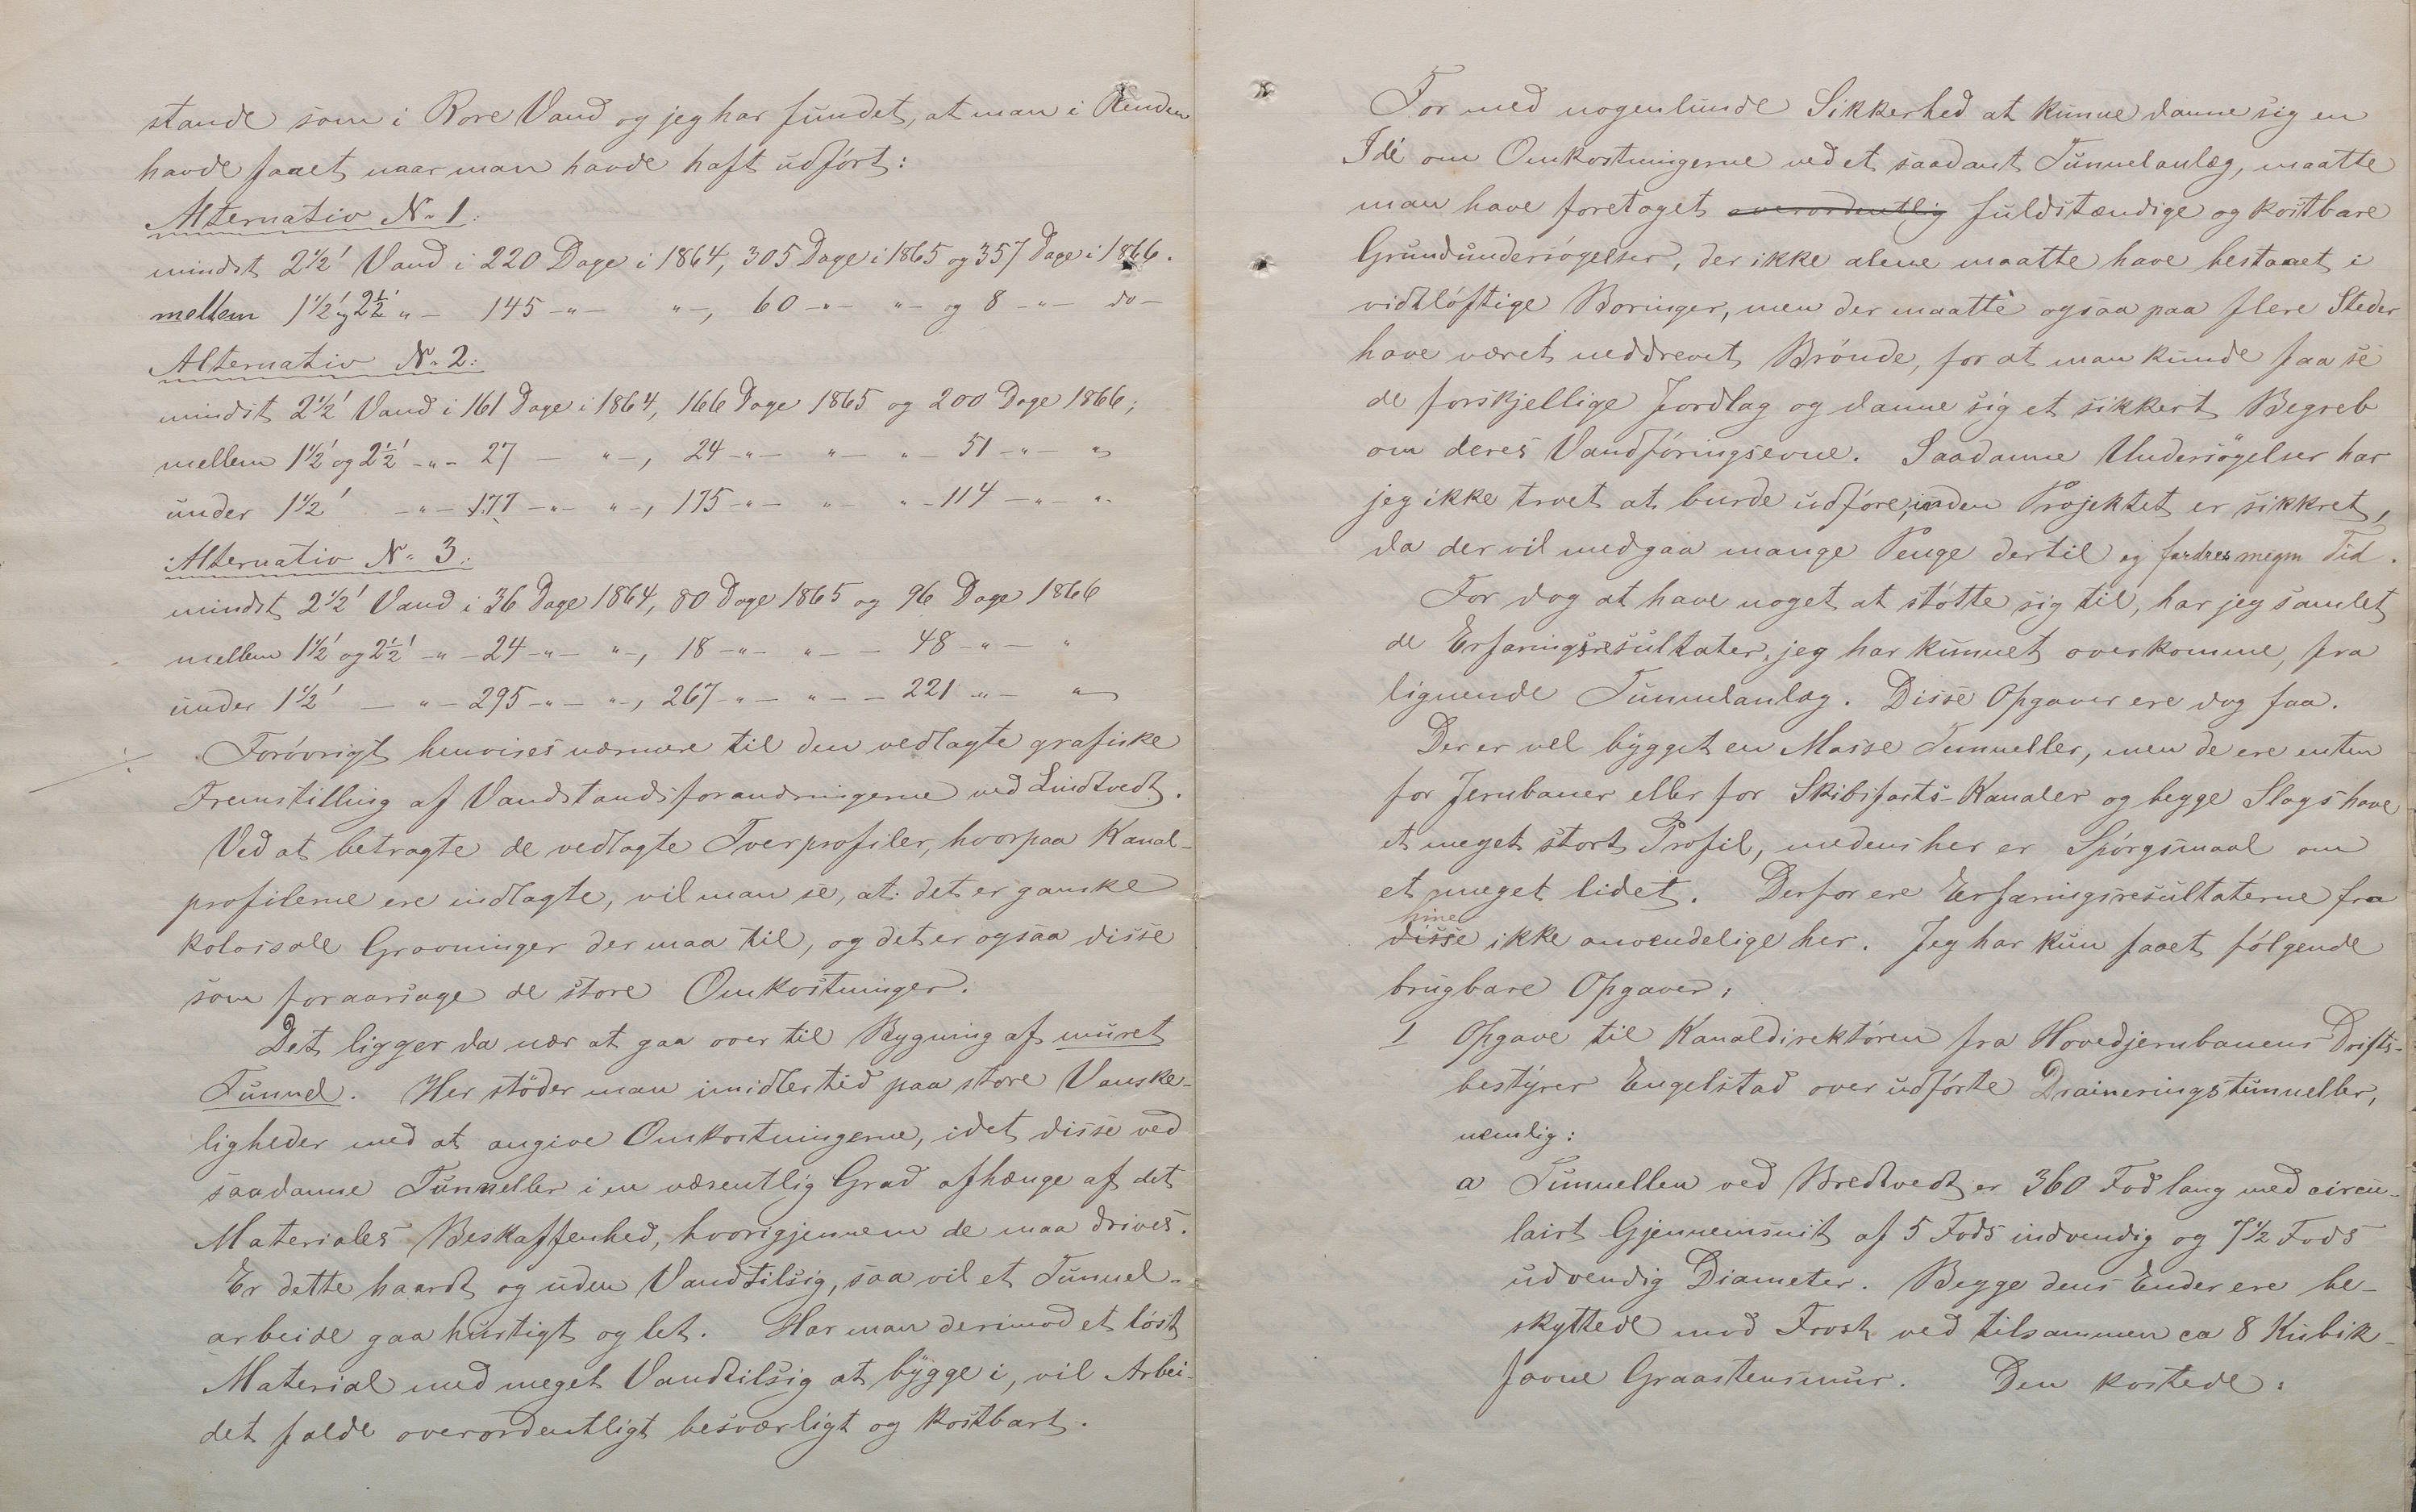 stande som i Rore Vand og jeg har fundet, at man i Renden
havde faaet naar man havde haft udført:
Alternativ No 1.
mindst 2 1/2' Vand i 220 Dage i 1864, 305 Dage i 1865 og 357 Dage i 1866.
mellem 1 1/2' og 2 1/2' " — 145 — " — " —, 60 — " — " — og 8 — " — do —
Alternativ No 2:
mindst 2 1/2' Vand i 161 Dage i 1864, 166 Dage 1865 og 200 Dage 1866;
mellem 1 1/2' og 2 1/2' — " — 27 — " —, 24 — " — " — " — 51 — " — "
under 1 1/2' — " — 177 — " — " —, 175 — " — " — " — 114 — " — "
Alternativ No 3:
mindst 2 1/2' Vand i 36 Dage 1864, 80 Dage 1865 og 96 Dage 1866
mellem 1 1/2' og 2 1/2' — " — 24 — " — " —, 18 — " — " — — 48 — " — "
under 1 1/2' — " — 295 — " — " —, 267 — " — " — — 221 — " — "
Forøvrigt henvises nærmere til den vedlagte grafiske
Fremstilling af Vandstandsforandringerne ved Lindtvedt.
Ved at betragte de vedlagte Tverprofiler, hvorpaa Kanal-
profilerne ere indlagte, vil man se, at det er ganske
kolossale Gravninger der maa til, og det er ogsaa disse
som foraarsage de store Omkostninger.
Det ligger da nær at gaa over til Bygning af muret
Tunnel. Her støder man imidlertid paa store Vanske-
ligheder med at angive Omkostningerne, idet disse ved
saadanne Tunneller i en væsentlig Grad afhænge af det
Materiales Beskaffenhed, hvorigjennem de maa drives.
Er dette haardt og uden Vandtilsig, saa vil et Tunnel-
arbeide gaa hurtigt og let. Har man derimod et løst
Material med meget Vandtilsig at bygge i, vil Arbei-
det falde overordentligt besværligt og kostbart.
For med nogenlunde Sikkerhed at kunne danne sig en
Idé om Omkostningerne ved et saadant Tunnelanlæg, maatte
man have foretaget overordentlig fuldstændige og kostbare
Grundundersøgelser, der ikke alene maatte have bestaaet i
vidtløftige Boringer, men der maatte ogsaa paa flere Steder
have været neddrevet Brønde, for at man kunde faa se
de forskjellige Jordlag og danne sig et sikkert Begreb
om deres Vandføringsevne. Saadanne Undersøgelser har
jeg ikke troet at burde udføre, inden Projektet er sikkret,
da der vil medgaa mange Penge dertil og fordres megen Tid.
For dog at have noget at støtte sig til, har jeg samlet
de Erfaringsresultater, jeg har kunnet overkomme, fra
lignende Tunnelanlæg. Disse Opgaver ere dog faa.
Der er vel bygget en Masse Tunneller, men de ere enten
for Jernbaner eller for Skibsfarts-Kanaler og begge Slags have
et meget stort Profil, medens her er Spørgsmaal om
et meget lidet. Derfor ere Erfaringsresultaterne fra
hine
disse ikke anvendelige her. Jeg har kun faaet følgende
brugbare Opgaver:
1 Opgave til Kanaldirektøren fra Hovedjernbanens Drifts-
bestyrer Engelstad over udførte Draineringstunneller,
nemlig:
a Tunnellen ved Bredtvedt er 360 Fod lang med circu-
lairt Gjennemsnit af 5 Fods indvendig og 7 1/2 Fods
udvendig Diameter. Begge dens Ender ere be-
skyttede mod Frost ved tilsammen ca 8 Kubik-
favne Graastensmur. Den kostede: